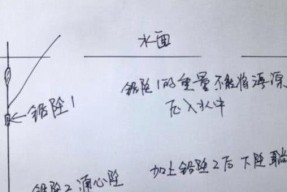 水面
铅坠1的重量不能将海漂
压入水中
铅坠1
铅坠2 通心坠
加上铅坠2后 下坠